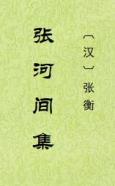 张河间集
〔汉〕张衡